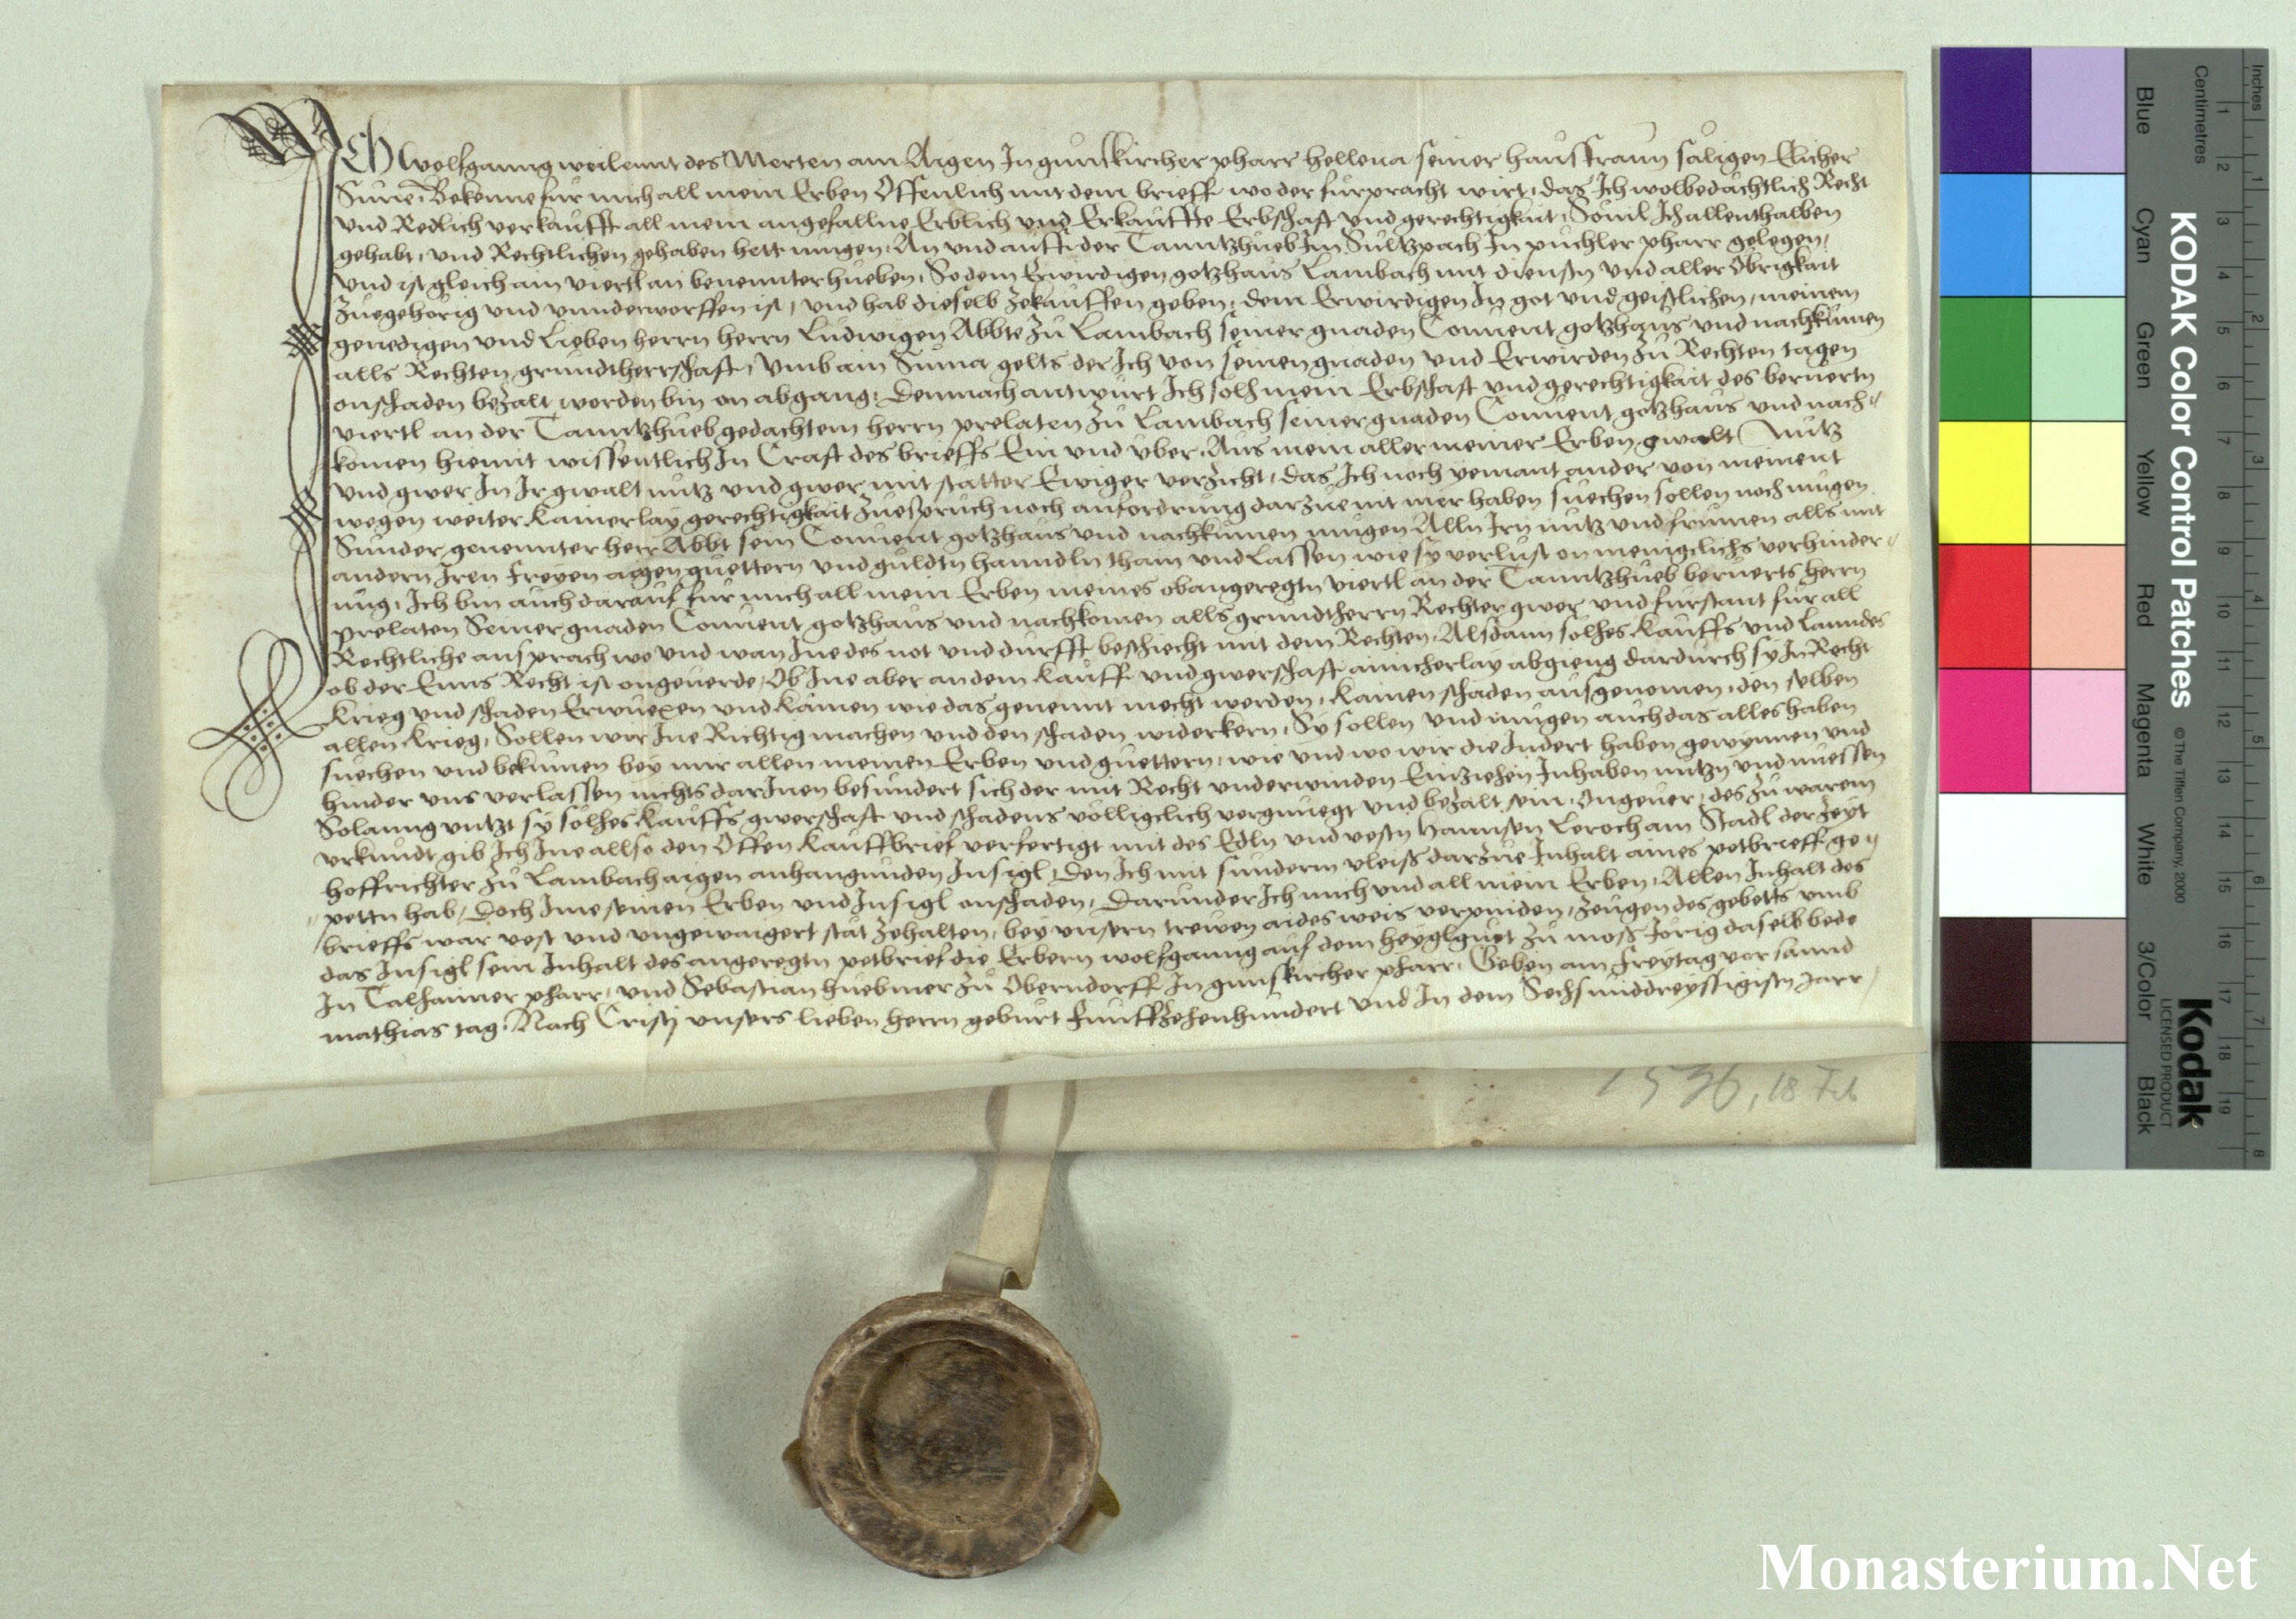 Ich Wolfganng weilennt des Merten am Aigen In gunskircher pharr hellena seiner hausfraun säligen Elicher
Sune, Bekenne fur mich all mein Erben Offenlich mit dem brieff wo der furpracht wirt, das Ich wolbedächtlich Recht
und Redlich verkaufft all mein angefallne Erblich und Erkauffte Erbschafft und gerechtigkait, Souil Ich allenthalben
gehabt, und Rechtlichen gehaben hett mugen, An und auff der Tanntzhueb Im Sultzpach In puchler pharr gelegen,
und ist gleich ain viertl an benennter hueben, So dem Erwirdigen gotzhaus Lambach mit diensten und aller Obrigkait
zuegehorig und unnderworffen ist, und hab dieselb zekauffen geben, dem Erwirdigen In got und geistlichen, meinem
genedigen und Lieben herrn herrn Ludwigen Abbte zu Lambach seiner gnaden Conuent gotzhaus und nachkumen
alls Rechten grundtherrschafft, Umb ain Suma gelts der Ich von seinen gnaden und Erwirden zu Rechten tagen
on schaden bezalt worden bin on abgang, Demnach antwurt Ich solh mein Erbschafft und gerechtigkait des beruertn
viertl an der Tanntzhueb gedachtem herrn prelaten zu Lambach seiner gnaden Conuent gotzhaus und nach-
komen hiemit wissentlich In Craft des brieffs Ein und uber, Aus mein aller meiner Erben, gwalt Nutz
und gwer In Ir gwalt nutz und gwer, mit statter Ewiger verzicht, das Ich noch yemant ander von meinent
wegen weiter kainerlay gerechtigkait zuespruch noch anfordrung darzue nit mer haben suechen sollen noch mugen
Sunder genennter herr Abbt sein Conuent gotzhaus und nachkumen mugen Alln Irn nutz und frumen alls mit
andern Iren freyen aigen guettern und guldtn hanndln thain und Lassen wie sy verlust on menigclichs verhinder-
ung, Ich bin auch darauf fur mich all mein Erben meines obangeregtn viertl an der Tanntzhueb beruerts herrn
prelaten Seiner gnaden Conuent gotzhaus und nachkomen alls grundtherrn Rechter gwer und furstant fur all
Rechtliche ansprach wo und wan Ine des not und durfft beschiecht mit dem Rechten, Alsdann solhes kauffs und Lanndes
ob der Enns Recht ist ongeuerde, Ob Ine aber an dem kauff und gwerschafft ainicherlay abgieng dardurch sy In Recht
krieg und schaden Erwuexen und kamen wie das genennt mecht werden, kainen schaden ausgenomen, den selben
allen krieg, Sollen wir Ine Richtig machen und den schaden widerkern, Sy sollen und mugen auch das alles haben
suechen und bekumen bey mir allen meinen Erben und guettern, wie und wo wir die Indert haben gewynnen und
hinder uns verlassen nichts darInen besundert sich der mit Recht underwinden Einziehen Inhaben nutzn und niessen
Solanng untzt sy solhes kauffs gwerschafft und schadens volligclich vergnuegt und bezalt sein, Ongeuer, des zu warem
urkundt gib Ich Ine allso den Offen kauffbrief verfertigt mit des Edln und vestn Hannsen Leroch am Stadl der zeyt
hoffrichter zu Lambach aigen anhangunden Insigl, Den Ich mit sunderm vleiß darzue Inhalt aines petbrieff ge-
pettn hab, Doch Ime seinen Erben und Insigl on schaden, Darunder Ich mich und all mein Erben, Allen Inhalt des
brieffs war vest und ungewaigert stät zehalten, bey unsern trewen aides weis verpinden, zeugen des gebetts umb
das Insigl sein Inhalt des angeregtn petbrief die Erbern wolfganng auf dem heyglguet zu moß Jorig daselb bede
In Talhaimer pharr, und Sebastian huebmer zu Oberndorff In gunskircher pharr, Geben am freytag vor sannd
mathias tag, Nach Cristj unsers lieben herrn geburt Funffzehenhundert und In dem Sechsunddreyssigistn Jarr
1536, 18 Feb
Blue
Cyan
Green
Yellow
Red
Magenta
White
3/Color
Black
KODAK Color Control Patches © The Tiffen Company, 2000
Kodak
LICENSED PRODUCT
Centimetres
1 2 3 4 5 6 7 8 9 10 11 12 13 14 15 16 17 18 19
Inches
1 2 3 4 5 6 7 8
Monasterium.Net